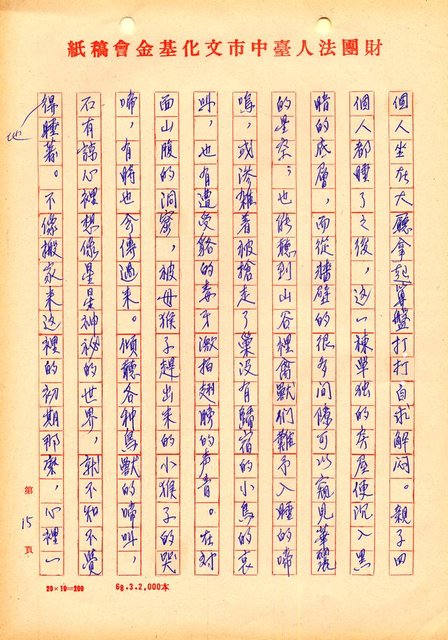 財團法人臺中市文化基金會稿紙
個人坐在大廳拿起算盤打打自求解悶。親子四
個人都睡了之後，這一棟單独的房屋便沉入黑
暗的底層，而從牆壁的很多间隙可以窺見華麗
的星祭；也能聽到山谷裡禽獸們難不入睡的啼
鳴，或渗雜着被搶走了巢没有歸宿的小鳥的哀
叫，也有遭受貉的毒牙激拍翅膀的声音。在对
面山腹的洞窟，被母猴子趕出来的小猴子的哭
啼，有時也会傳過来。傾聽各种鳥獸的啼叫，
石有諒心裡想像星星神祕的世界，就不知不覺
地
得睡著。不像搬家来这裡的初期那麽，心裡一
第15頁
20×10=200
68.3.2,000本